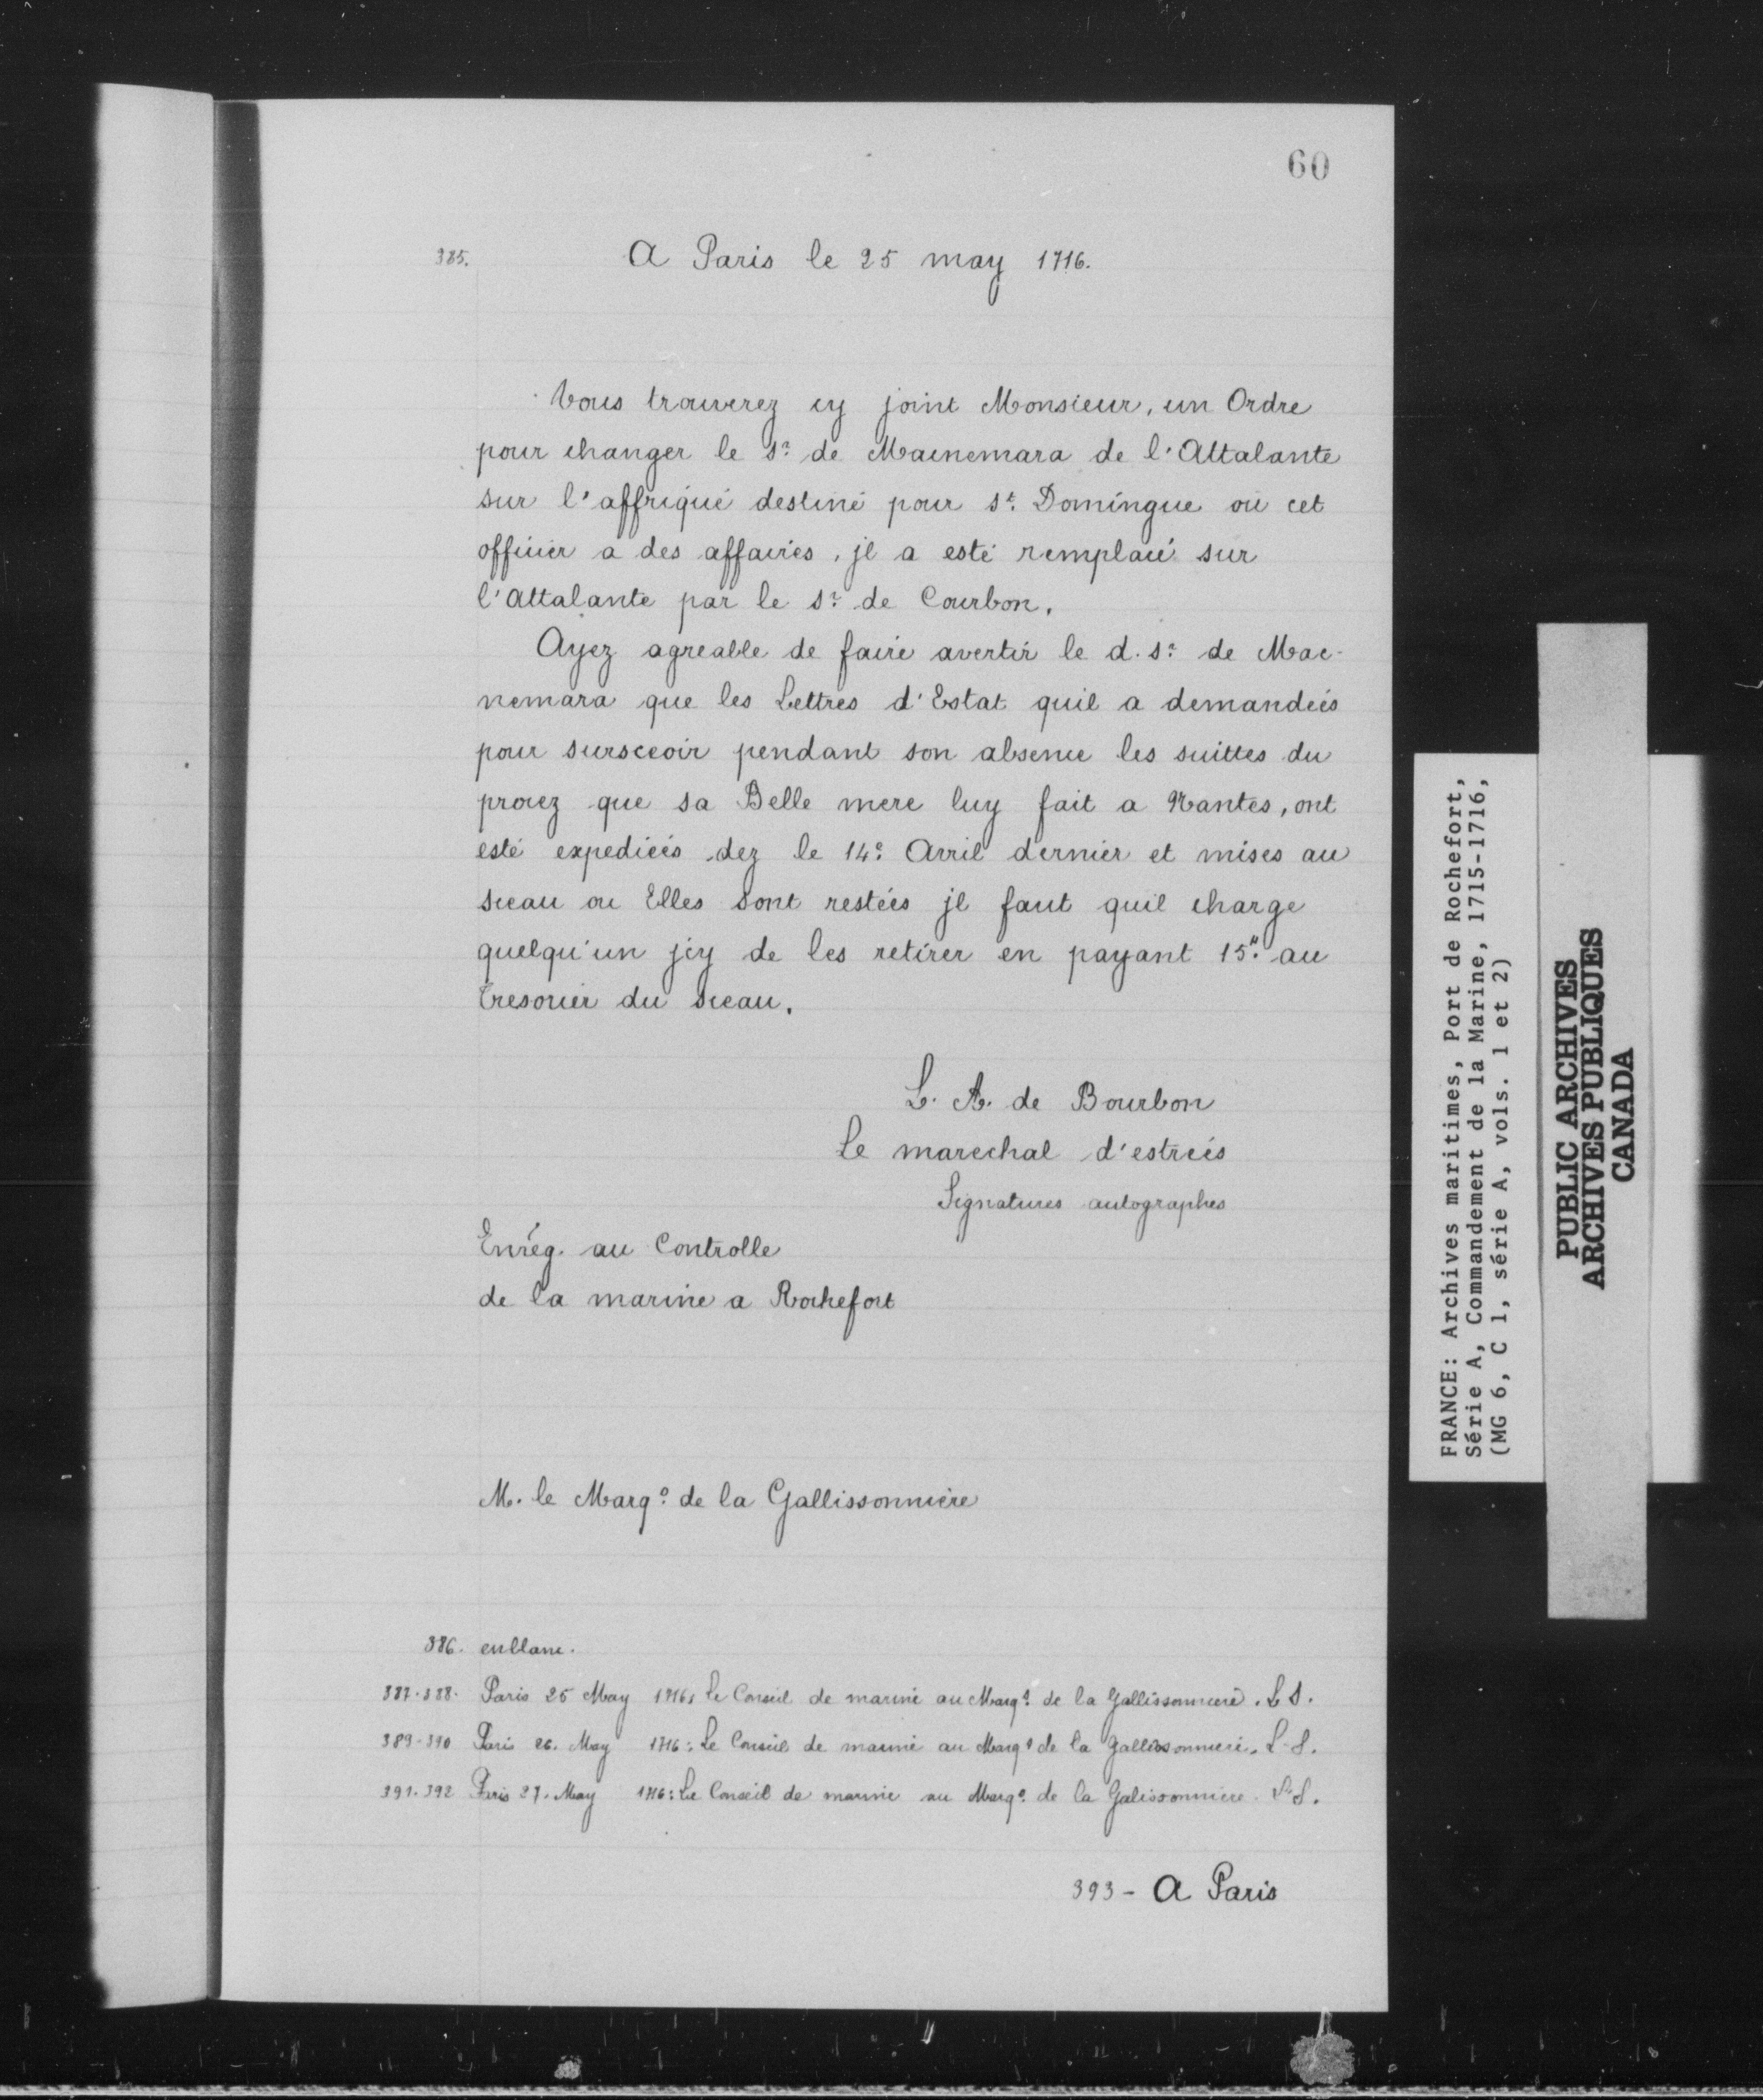 60
385. A Paris le 25 may 1716.
Vous trouverez cy joint Monsieur, un Ordre
pour changer le Sr. de Macnemara de l'Attalante
sur l'affrique destiné pour St. Domingue ou cet
officier a des affaires, jl a esté remplacé sur
l'Attalante par le Sr. de Courbon.
Ayez agreable de faire avertir le d. Sr. de Mac-
nemara que les Lettres d'Estat quil a demandées
pour sursceoir pendant son absence les suittes du
procez que sa Belle mere luy fait a Nantes, ont
esté expediées dez le 14e. Avril dernier et mises au
sceau ou Elles sont restées jl faut quil charge
quelqu'un jcy de les retirer en payant 15.tt au
Tresorier du Sceau.
L. A. de Bourbon
Le marechal d'estrées
Signatures autographes
Enrég. au Controlle
de la marine a Rochefort
M. le Marq.s de la Gallissonniere
386. en blanc.
387-388. Paris 25 May 1716: Le Conseil de marine au Marq.s de la Gallissonniere. L S.
389-390 Paris 26. May 1716: Le Conseil de marine au Marq.s de la Gallissonniere. L. S.
391-392 Paris 27. May 1716: Le Conseil de marine au Marq.s de la Galissonniere. L. S.
393 - A Paris
FRANCE: Archives maritimes, Port de Rochefort,
Série A, Commandement de la Marine, 1715-1716,
(MG 6, C 1, série A, vols. 1 et 2)
PUBLIC ARCHIVES
ARCHIVES PUBLIQUES
CANADA